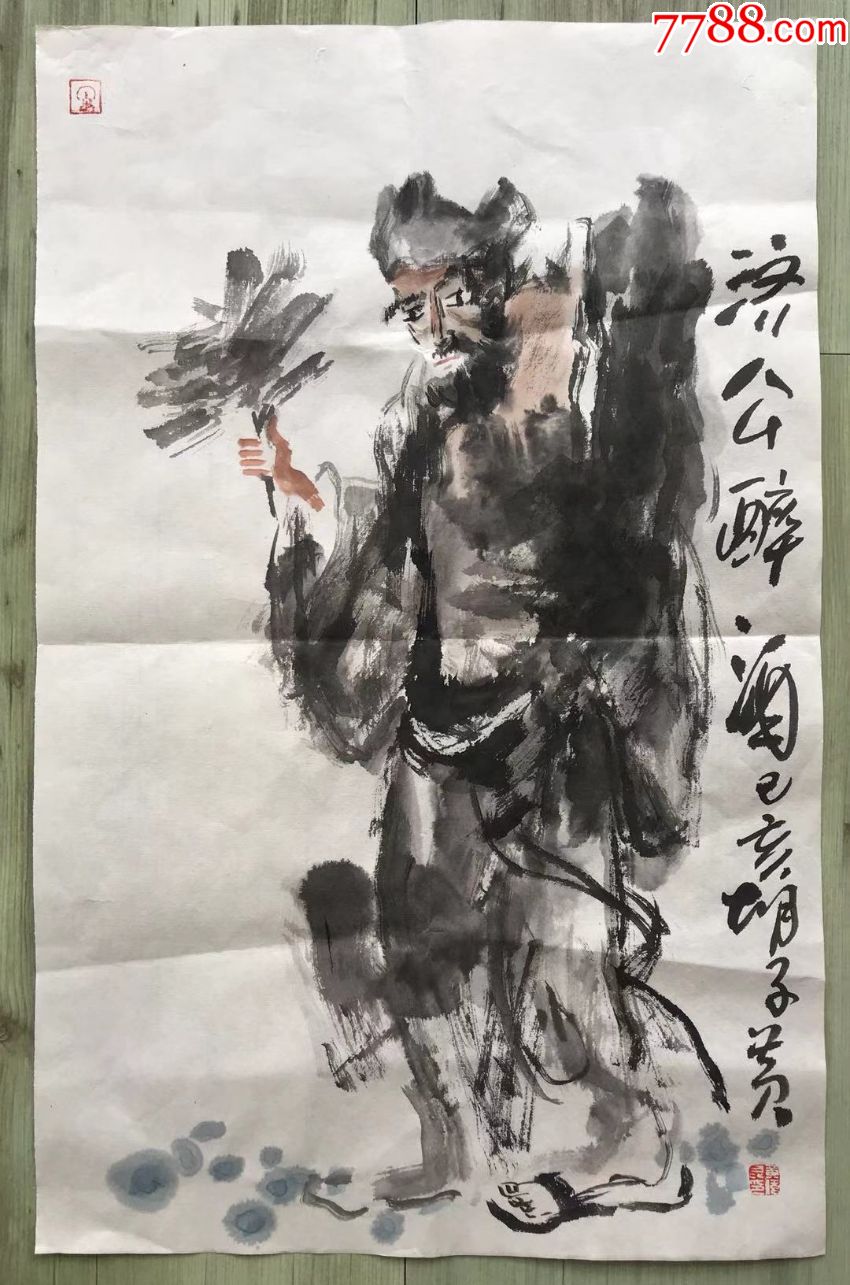 7788.com
济公醉酒己亥胡子黄